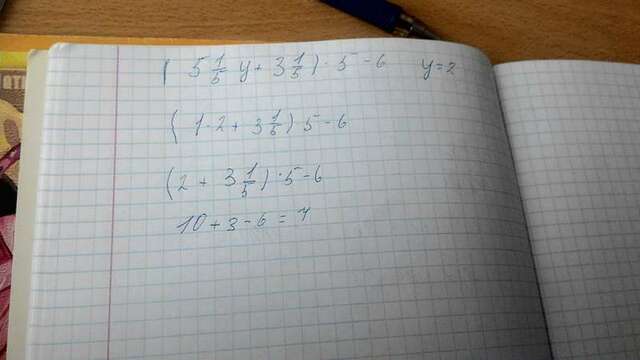 ( 5 1/6 y + 3 1/5 ) · 5 - 6   y = 2
( 1 · 2 + 3 1/6 ) 5 - 6
( 2 + 3 1/6 ) · 5 - 6
10 + 3 - 6 = 7